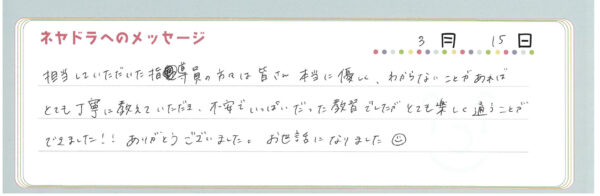 ネヤドラへのメッセージ
3月 15日
担当していただいた指導員の方々は皆さん 本当に優しく、わからないことがあれば
とても丁寧に教えていただき、不安でいっぱいだった教習でしたが とても楽しく通うことが
できました!! ありがとうございました。 お世話になりました